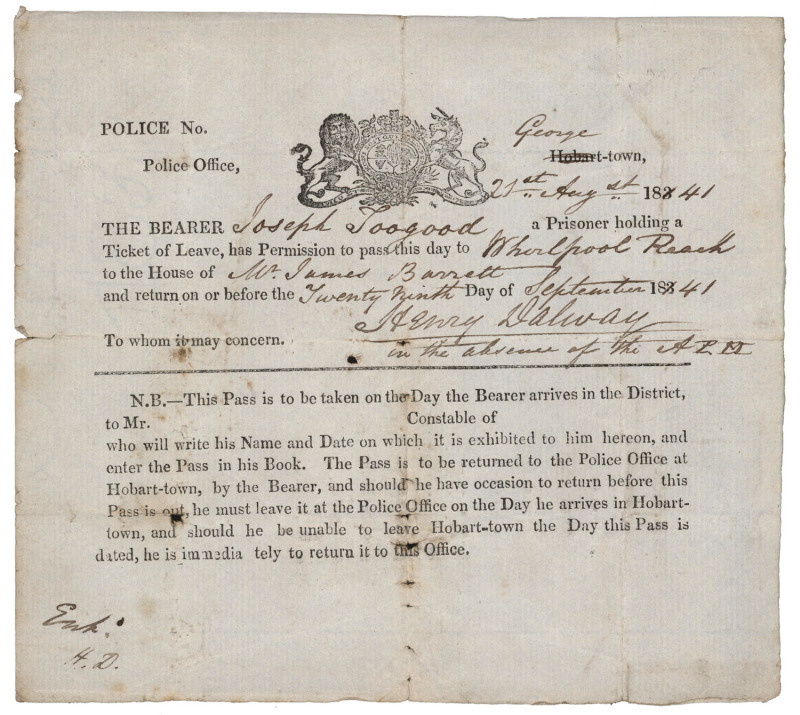 POLICE No.
George
Police Office,
Hobart-town,
21st Augst 18341
THE BEARER Joseph Toogood a Prisoner holding a
Ticket of Leave, has Permission to pass this day to Whirlpool Reach
to the House of Mr. James Barrett
and return on or before the Twenty Ninth Day of September 18341
Henry Dalway
To whom it may concern.
in the absence of the A P M
N.B.—This Pass is to be taken on the Day the Bearer arrives in the District,
to Mr. Constable of
who will write his Name and Date on which it is exhibited to him hereon, and
enter the Pass in his Book. The Pass is to be returned to the Police Office at
Hobart-town, by the Bearer, and should he have occasion to return before this
Pass is out, he must leave it at the Police Office on the Day he arrives in Hobart-
town, and should he be unable to leave Hobart-town the Day this Pass is
dated, he is immedia tely to return it to this Office.
H.D.